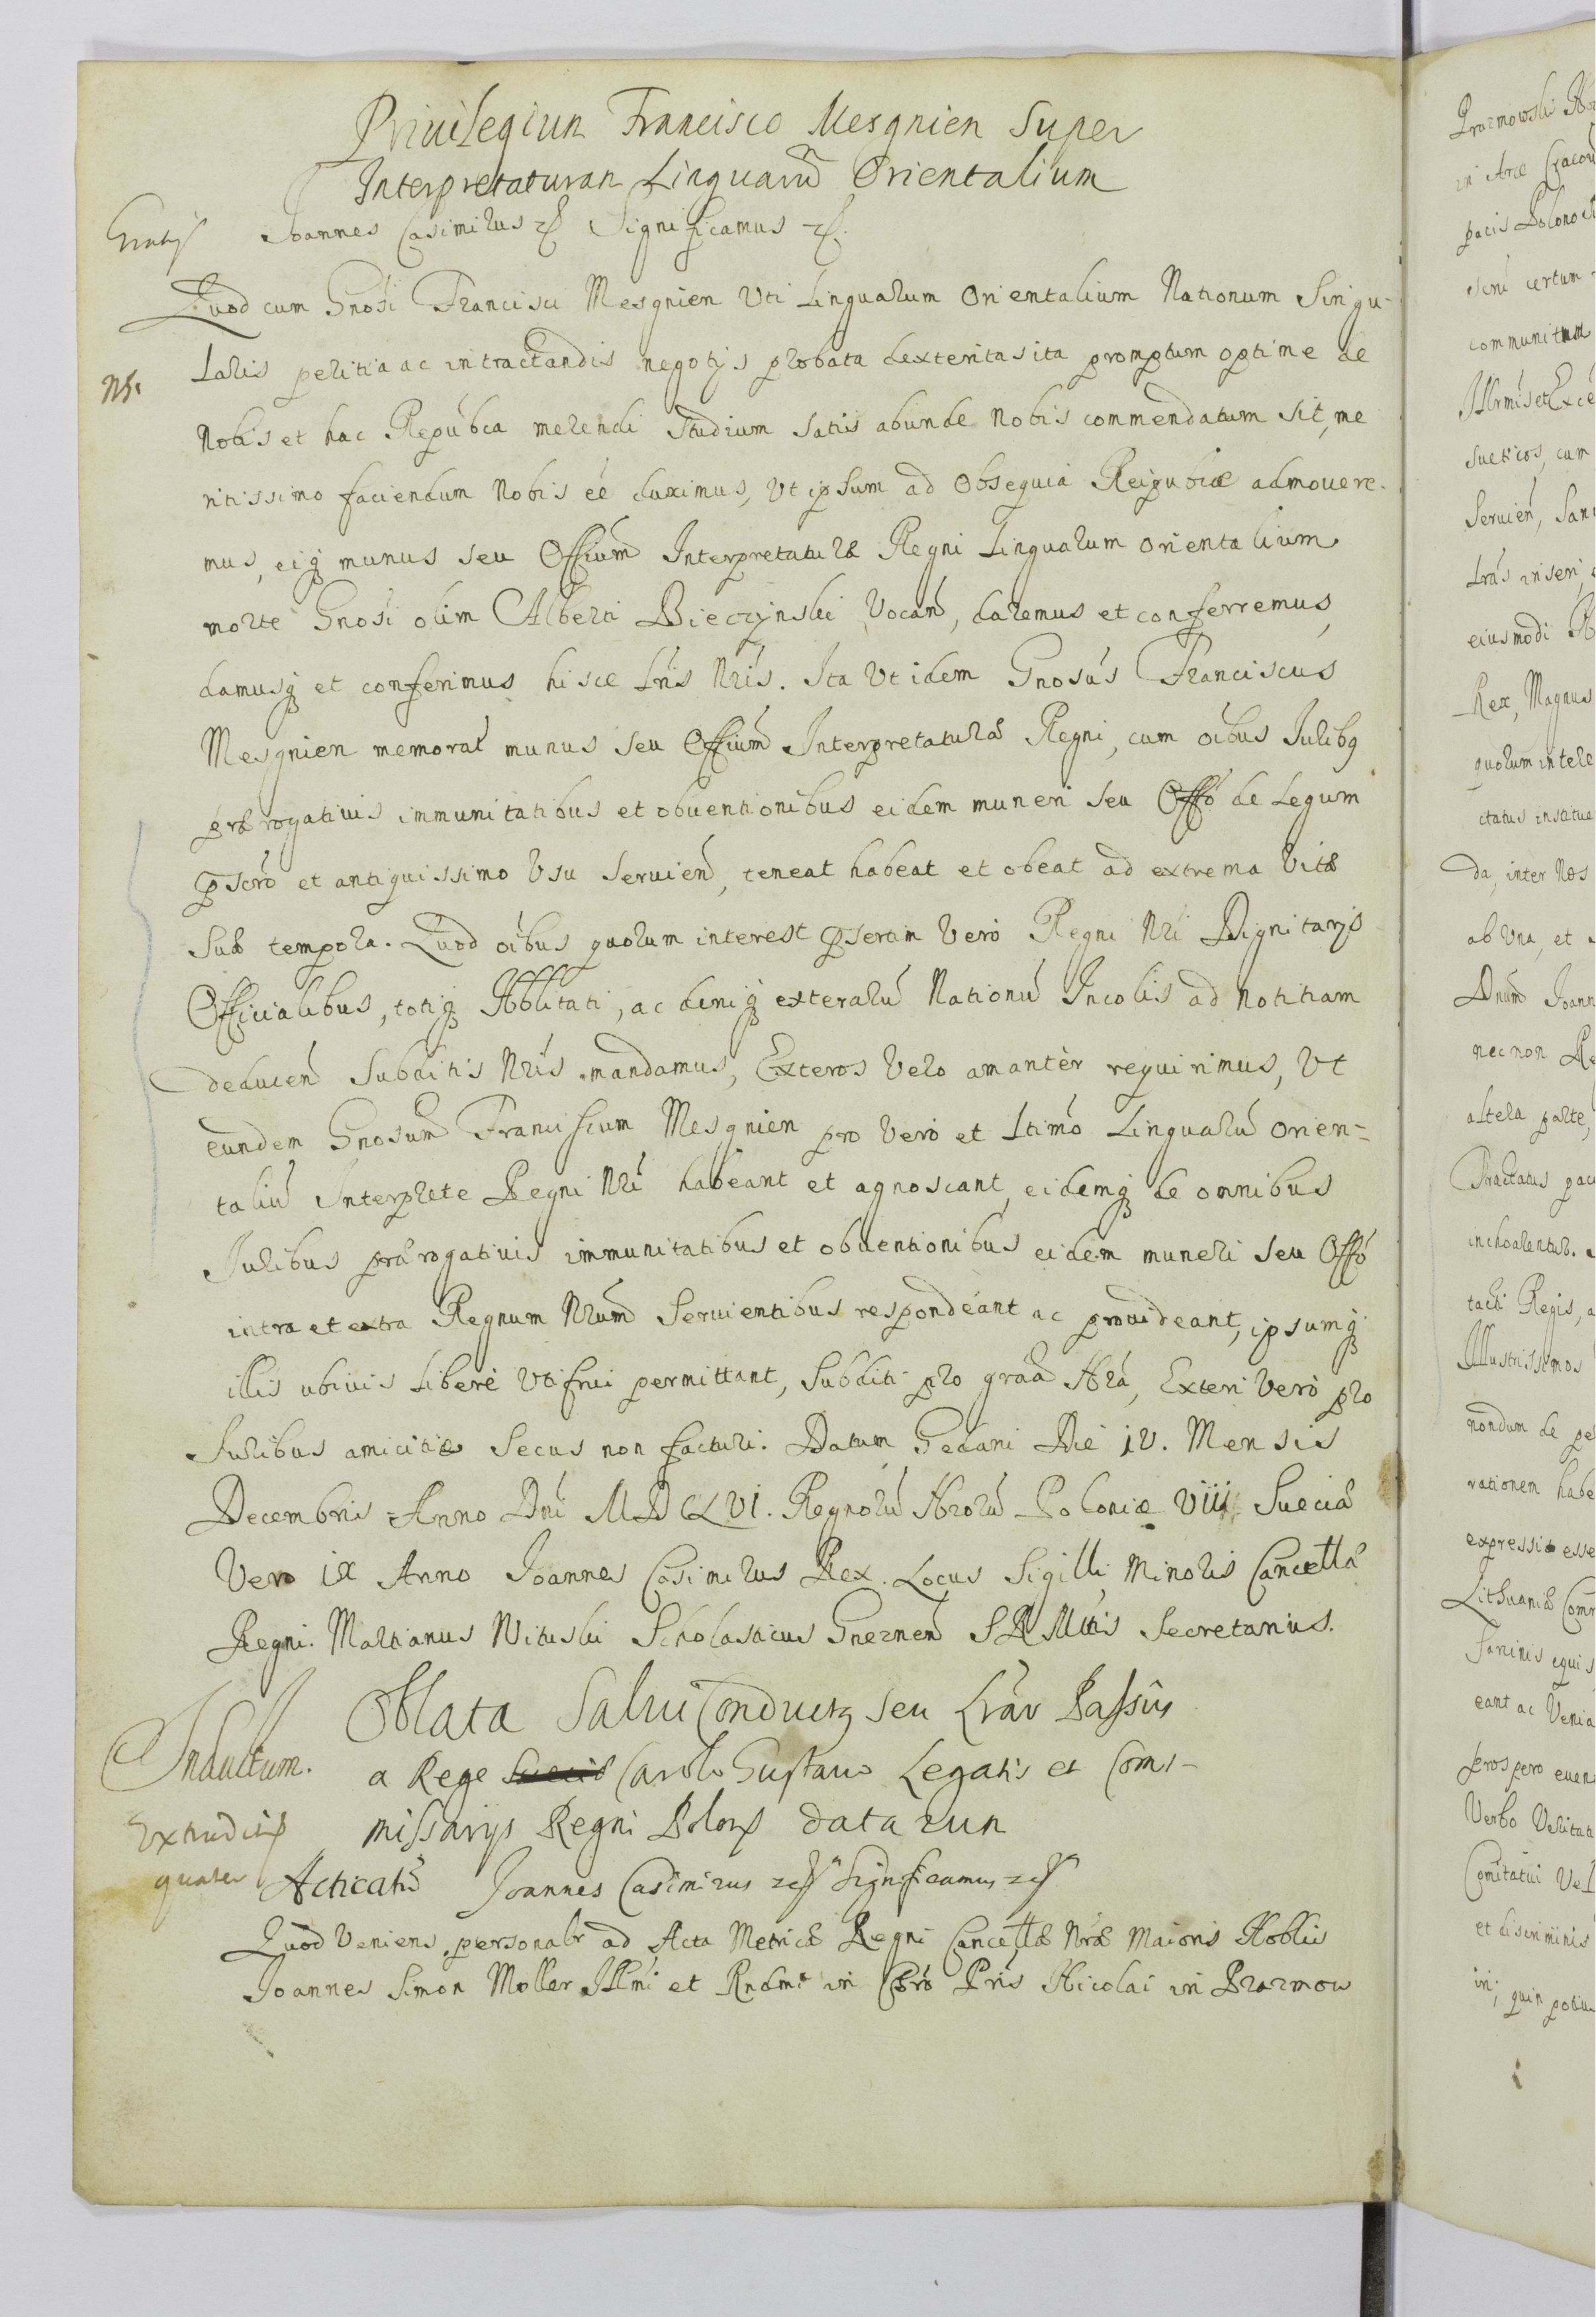 Priuilegium Francisco Mesgnien Super
Interpretaturam Linguarū Orientalium
Gratis Joannes Casimirus Significamus
Quod cum Gnosi Francisci Mesgnien Uti Linguarum Orientalium Nationum Singu-
laris peritia ac in tractandis negotijs probata dexteritas ita promptum optime de
NB.
Nobis et hac Repúbca merendi studium satis abunde Nobis commendatum sit, me
ritissimo faciendum Nobis eé duximus, Ut ipsum ad Obsequia Reipubcæ admovere-
mus, eiq munus seu Offium Interpretaturæ Regni Linguarum Orientalium
morte Gnosi olim Alberti Bieczynski Vocan, daremus et conferremus,
damusq et conferimus hisce Lris Nris. Ita Ut idem Gnosus Franciscus
Mesgnien memorat munus seu Offium Interpretaturæ Regni, cum oibus Juribq
prærogativis immunitatibus et obventionibus eidem muneri seu Offo de Legum
pscro et antiquissimo Usu Servien, teneat habeat et obeat ad extrema Vitæ
Suæ tempora. Quod oibus quorum interest pserim Vero Regni Nri Dignitarijs
Officialibus, totiq Nobblitati, ac deniq exterarū Nationū Incolis ad notitiam
deducen Subditis Nris mandamus, Exteros Vero amantèr requirimus, Ut
eundem Gnosum Franciscum Mesgnien pro Vero et Ltimo Linguarū Orien-
taliū Interprete Regni Nri habeant et agnoscant, eidemq de omnibus
Juribus prærogativis immunitatibus et obventionibus eidem muneri seu Offo
intra et extra Regnum Nrum Servientibus respondeant ac provideant, ipsumq
illis ubivis liberè Uti frui permittant, Subditi pro graa Nra, Exteri Verò pro
Juribus amicitiæ secus non facturi. Datum Gedani Die iv. Mensis
Decembris Anno Dni MDCLVI. Regnorū Nrorū Poloniæ Viii Sueciæ
Vero ix Anno Joannes Casimirus Rex. Locus Sigilli Minoris Cancellæ
Regni. Martianus Wituski Scholasticus Gneznen SRMttis Secretarius.
Inductum. Oblata Salvi Conductq seu Lrar Passus
a Rege Carolo Gustavo Legatis et Comi-
Extradit missarijs Regni Polon datarum
quater Acticatū Joannes Casimirus Significamus
Quod Veniens personalr ad Acta Metricæ Regni Cancellæ Nræ Maioris Noblis
Joannes Simon Moller Illmi et Rndmi in Chro Pris Nicolai in Prazmow
Prazmowski
in Arce Cracov
pacis Polono
certum
communitum
Illrmis et Exce
sueticos, cum
Servien,
Lras inseri
eiusmodi
Rex, Magnus
quorum intere
ctatus institue
da, inter Nos
ab Una, et
Dnum Joann
necnon Re
altera parte,
Tractatus paci
inchoarentur.
tacti Regis, a
Illustrissimos
nondum de
rationem habe
expressis esse
Lithuaniæ Com
equis
eant ac Venia
prospero even
Verbo Veritati
Comitatui Vel
et discriminis
ini; quin potius